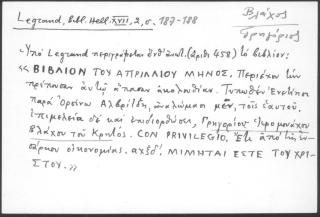 Legrand, bibl. Hell. XVII, 2, σ. 187-188
Βλάχος
Γρηγόριος
Ὑπὸ Legrand περιγράφεται ἀριθ. 458) τὸ βιβλίον:
«ΒΙΒΛΙΟΝ ΤΟΥ ΑΠΡΙΛΛΙΟΥ ΜΗΝΟΣ, Περιέχον τὴν
πρέπουσαν αὐτῷ ἅπασαν ἀκολουθίαν. Τυπωθὲν Ἐνετίησι
παρὰ Ὀρσίνῳ Ἀλβρίζῃ, ἀναλώμασι μὲν, τοῖς ἑαυτοῦ,
ἐπιμελείᾳ δὲ καὶ ἐπιδιορθώσει, Γρηγορίου Ἱερομονάχου
Βλάχου τοῦ Κρητός. CON PRIVILEGIO. Ἔτει ἀπὸ τῆς ἐν-
σάρκου οἰκονομίας. αχξδ΄. ΜΙΜΗΤΑΙ ΕΣΤΕ ΤΟΥ ΧΡΙ-
ΣΤΟΥ.»